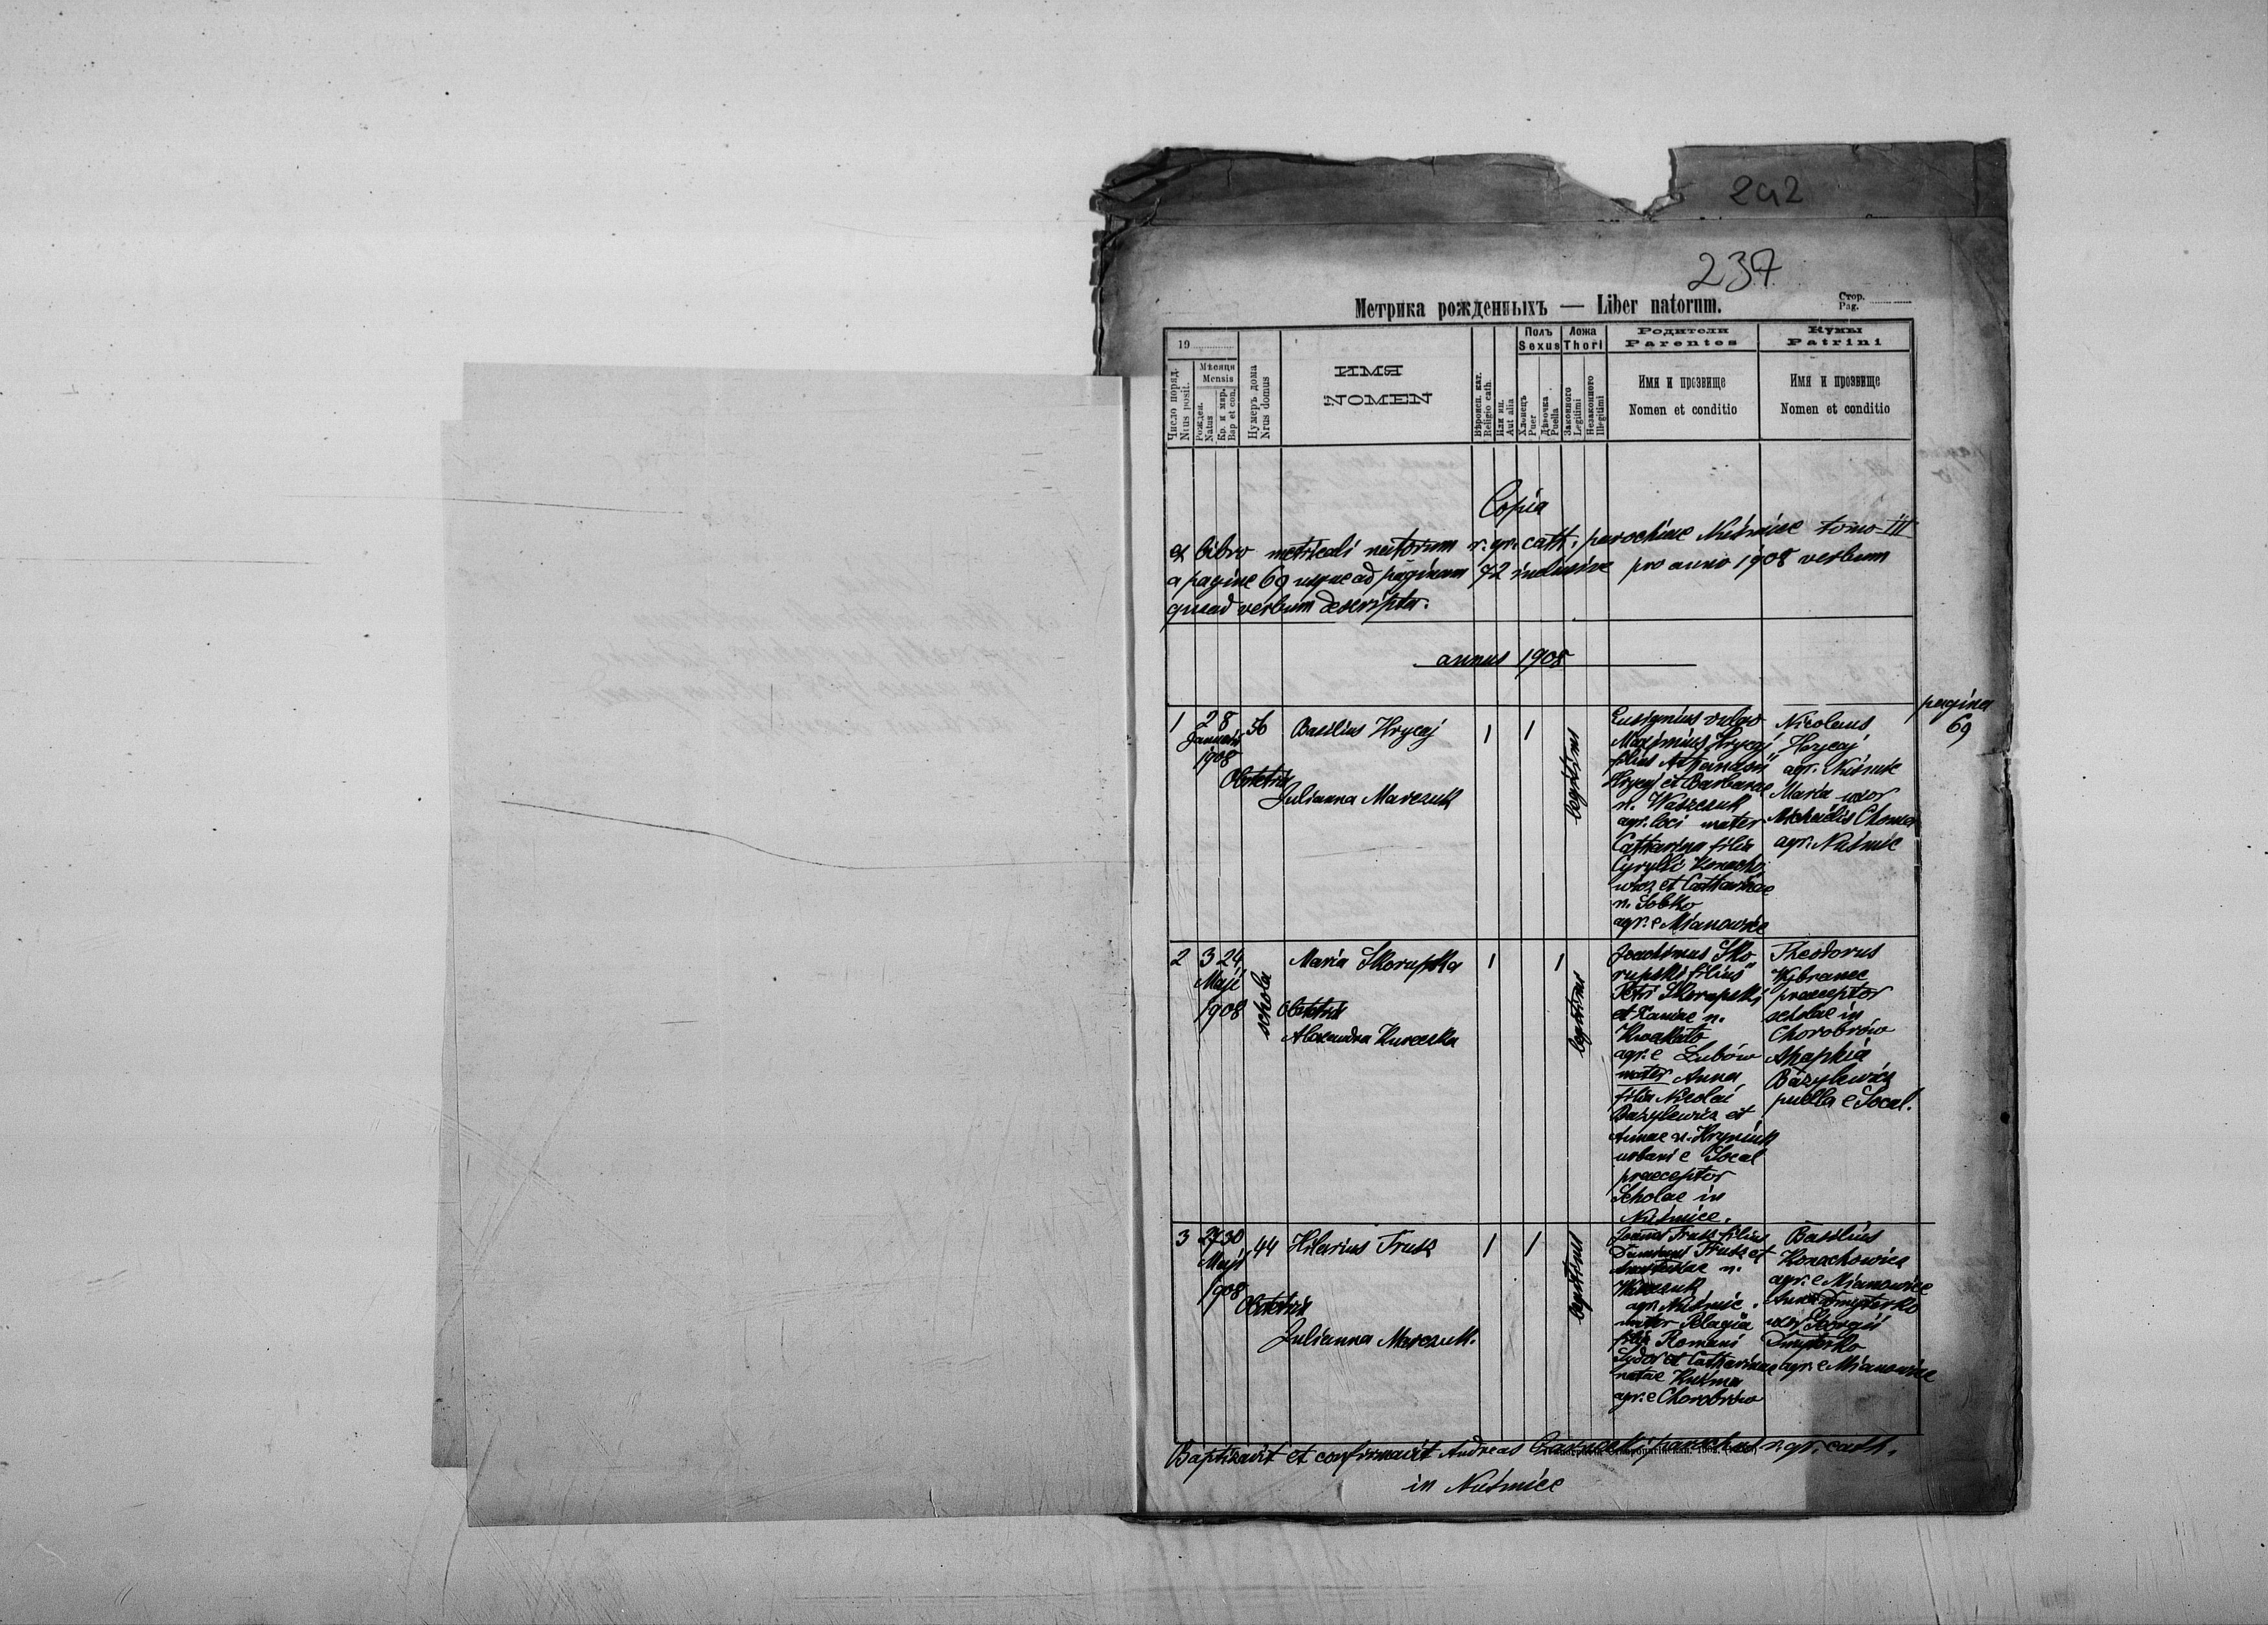 242
237
Метрика рожденныхъ — Liber natorum.
Стор.
Pag.
19
Число поряд.
Nrus posit.
Мѣсяця
Mensis
Рожден.
Natus
Кр. и мѵр.
Bap et con.
Нумеръ дома
Nrus domus
ИМЯ
NOMEN
Вѣроисп. кат.
Religio cath.
Или ин.
Aut alia
Полъ
Sexus
Хлопецъ
Puer
Дѣвочка
Puella
Ложа
Thori
Законного
Legitimi
Незаконного
Illegitimi
Родители
Parentes
Имя и прозвище
Nomen et conditio
Кумы
Patrini
Имя и прозвище
Nomen et conditio
Copia
ex libro metricali natorum r. gr. cath. parochiae Nuśmice tomo III
a pagina 69 usque ad paginam 72 inclusive pro anno 1908 verbum
quoad verbum descripta.
annus 1908
pagina
69
1
2 8
Januarii
1908
56
Basilius Hrycaj
Obstetrix
Julianna Marczuk
1
1
legitimus
Eusignius vulgo
Maximus Hrycaj
filius Athanasii
Hrycaj et Barbarae
n. Waszczuk
agr. loci mater
Catharina filia
Cyrylli Konacho
wicz et Catharinae
n. Sobko
agr. e Mianowice
Nicolaus
Hrycaj
agr. Nuśmice
Maria uxor
Michaelis Choma
agr. Nuśmice
2
3 24
Maji
1908
schola
Maria Skorupska
Obstetrix
Alexandra Kurecska
1
1
legitimus
Joachimus Sko
rupski filius
Petri Skorupski
et Xeniae n.
agr. e Lubów
mater Anna
filia Nicolai
Bazylewicz et
Annae n. Hryniuk
urbani e Socal
praeceptor
Scholae in
Nuśmice.
Theodorus
Wybranec
praeceptor
scholae in
Chorobrów
Ahaphia
Bazylewicz
puella e Socal.
3
27 30
Maji
1908
44
Hilarius Trusz
Obstetrix
Julianna Marczuk.
1
1
legitimus
Joannes Trusz filius
Trusz et
Anastasiae n.
Waszczuk
agr. Nuśmice.
mater Pelagia
filia Romani
Sydor et Catharinae
natae Kuźma
agr. e Chorobrów
Basilius
Konachowicz
agr. e Mianowice
Anna Dmyterko
uxor Georgii
Dmyterko
agr. e Mianowice
Baptisavit et confirmavit Andreas parochus r. gr. cath.
in Nuśmice